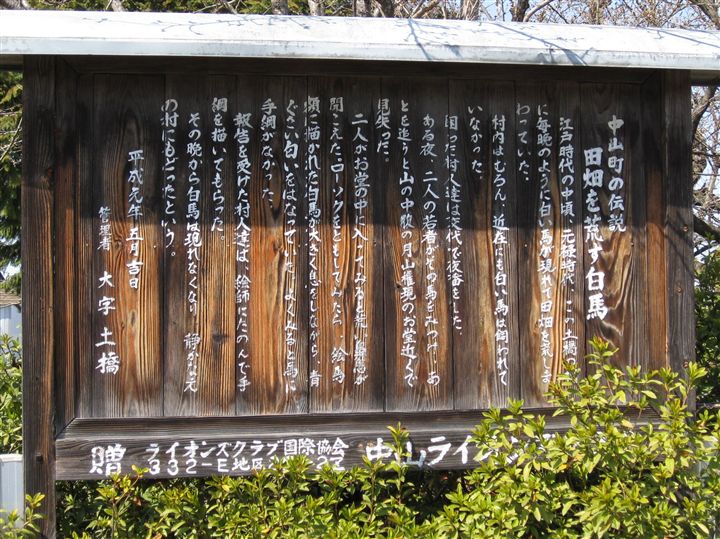 中山町の伝説
田畑を荒す白馬
江戸時代の中頃、元禄時代、この土橋
に毎晩のように白い馬が現れ、田畑を荒しま
わっていた。
村内はもちろん、近在にも白い馬は飼われて
いなかった。
困った村人達は交代で夜番をした
ある夜、二人の若者がその馬をみつけ、あ
とを追うと山の中腹の月山権現のお堂近くで
見失った。
二人がお堂の中に入ってみると荒い鼻息が
聞こえた。ローソクをともしてみたら、絵馬
額に描かれた白馬が大きく息をしながら、青
くさい匂いをはなっていた。よくみると馬に
手綱がなかった。
報告を受けた村人達は、絵師にたのんで手
綱を描いてもらった。
その晩から白馬は現れなくなり、静かな元
の村にもどったという。
平成元年五月吉日
管理者 大字 土橋
贈 ライオンズクラブ国際協会
332-E地区
中山ライオンズ